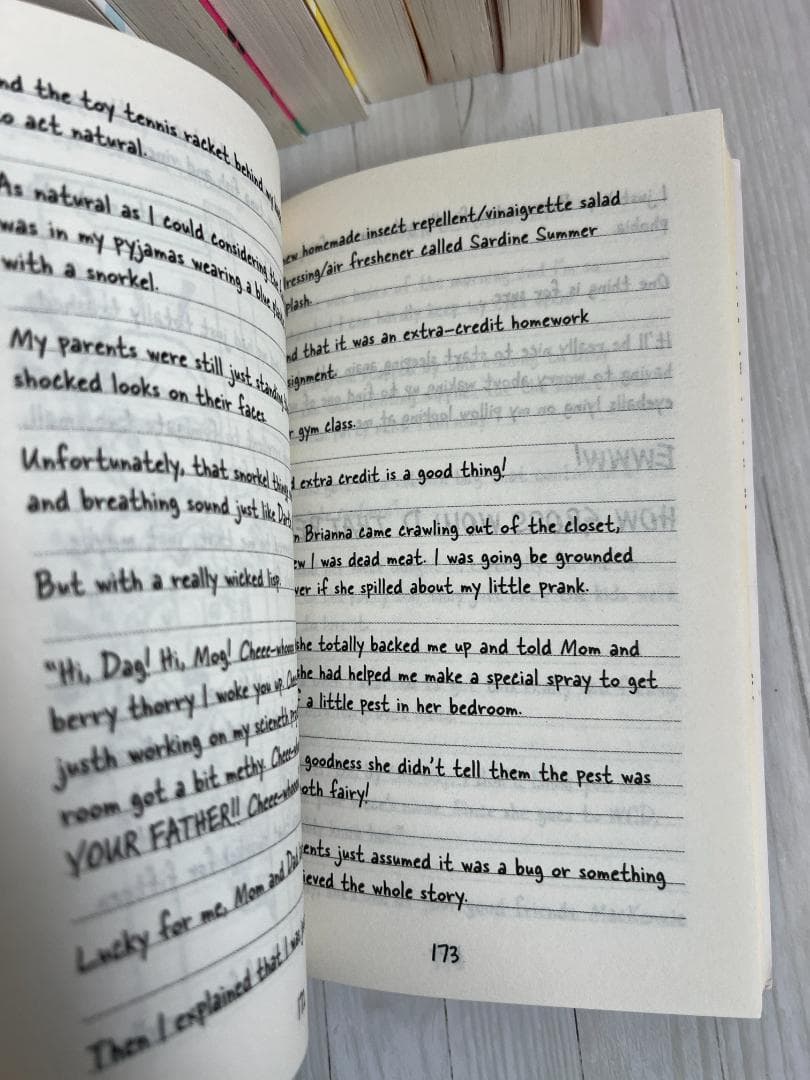 nd the toy tennis racket behind my
o act natural.
As natural as I could considering the
was in my pyjamas wearing a blue
with a snorkel.
My parents were still just standing
shocked looks on their faces.
Unfortunately, that snorkel thing
and breathing sound just like
But with a really wicked lisp.
"Hi, Dag! Hi, Mog! Cheee-whooo
berry thorry I woke you up.
justh working on my scienceth
room got a bit methy.
YOUR FATHER!! Cheee-whooo
Lucky for me, Mom and Dad
Then I explained that I was
ew homemade insect repellent/vinaigrette salad
ressing/air freshener called Sardine Summer
plash.
nd that it was an extra-credit homework
signment.
r gym class.
d extra credit is a good thing!
n Brianna came crawling out of the closet,
ew I was dead meat. I was going be grounded
ver if she spilled about my little prank.
she totally backed me up and told Mom and
she had helped me make a special spray to get
f a little pest in her bedroom.
goodness she didn't tell them the pest was
oth fairy!
ents just assumed it was a bug or something
ieved the whole story.
173